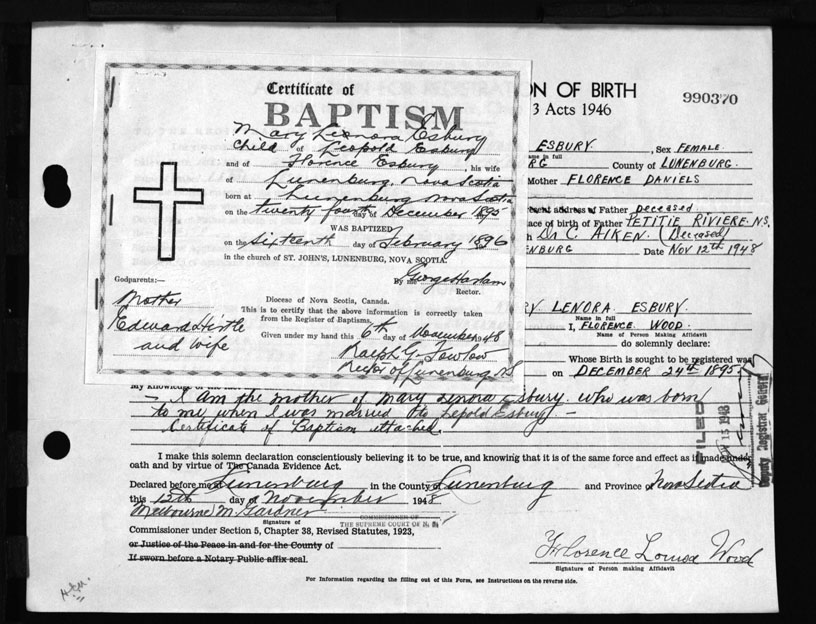 Certificate of
BAPTISM
Mary Leonora Esbury
Child of Leopold Esbury
and of Florence Esbury, his wife
of Lunenburg, Nova Scotia
born at Lunenburg Nova Scotia
on the twenty fourth day of December 1895
WAS BAPTIZED
on the Sixteenth day of February 1896
in the church of ST. JOHN'S, LUNENBURG, NOVA SCOTIA.
By me George Haslam
Rector.
Godparents:—
Mother
Edward Hirtle
and Wife
Diocese of Nova Scotia, Canada.
This is to certify that the above information is correctly taken
from the Register of Baptisms.
Given under my hand this 6th day of November 1948
Ralph G. Fowlow
Rector of Lunenburg N.S.
ON OF BIRTH
3 Acts 1946
990370
ESBURY. , Sex FEMALE.
ame in full
RG County of LUNENBURG.
Mother FLORENCE DANIELS
esent address of Father deceased
ace of birth of Father PETITIE RIVIERE N.S.
h Dr C. AIKEN. (Deceased)
ENBURG Date NOV 12th 1948
RY LENORA ESBURY.
Name in full
I, FLORENCE WOOD.
Name of Person Making Affidavit
do solemnly declare:
Whose Birth is sought to be registered was
on DECEMBER 24th 1895.
My knowledge of the
— I Am the mother of Mary Lenora Esbury who was born
to me when I was married to Lepold Esbury —
Certificate of Baptism attached.
I make this solemn declaration conscientiously believing it to be true, and knowing that it is of the same force and effect as if made under
oath and by virtue of The Canada Evidence Act.
Declared before me at Lunenburg in the County of Lunenburg and Province of Nova Scotia
this 12th day of November 1948
Melbourne M. Gardner
Signature of
COMMISSIONER OF
THE SUPREME COURT OF N. S.
Commissioner under Section 5, Chapter 38, Revised Statutes, 1923,
or Justice of the Peace in and for the County of
If sworn before a Notary Public affix seal.
Florence Louisa Wood
Signature of Person making Affidavit
For Information regarding the filling out of this Form, see Instructions on the reverse side.
FILED
15 1948
Deputy Registrar General